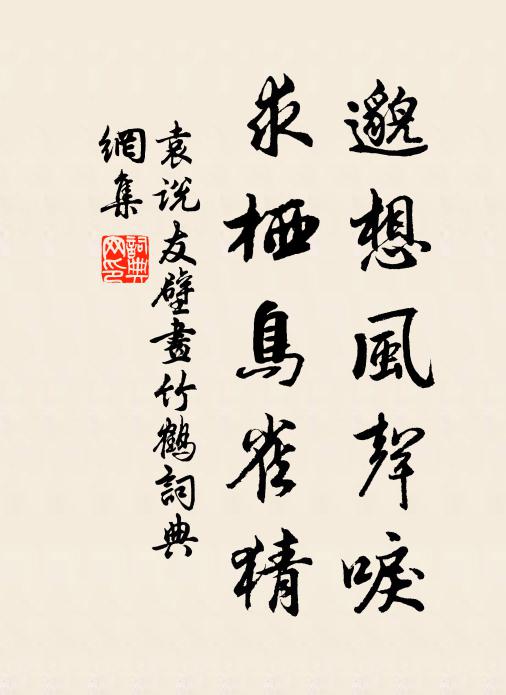 邈想風聲唳
求栖鳥雀猜
袁说友壁畫竹鶴詞典
網集
詞典网印